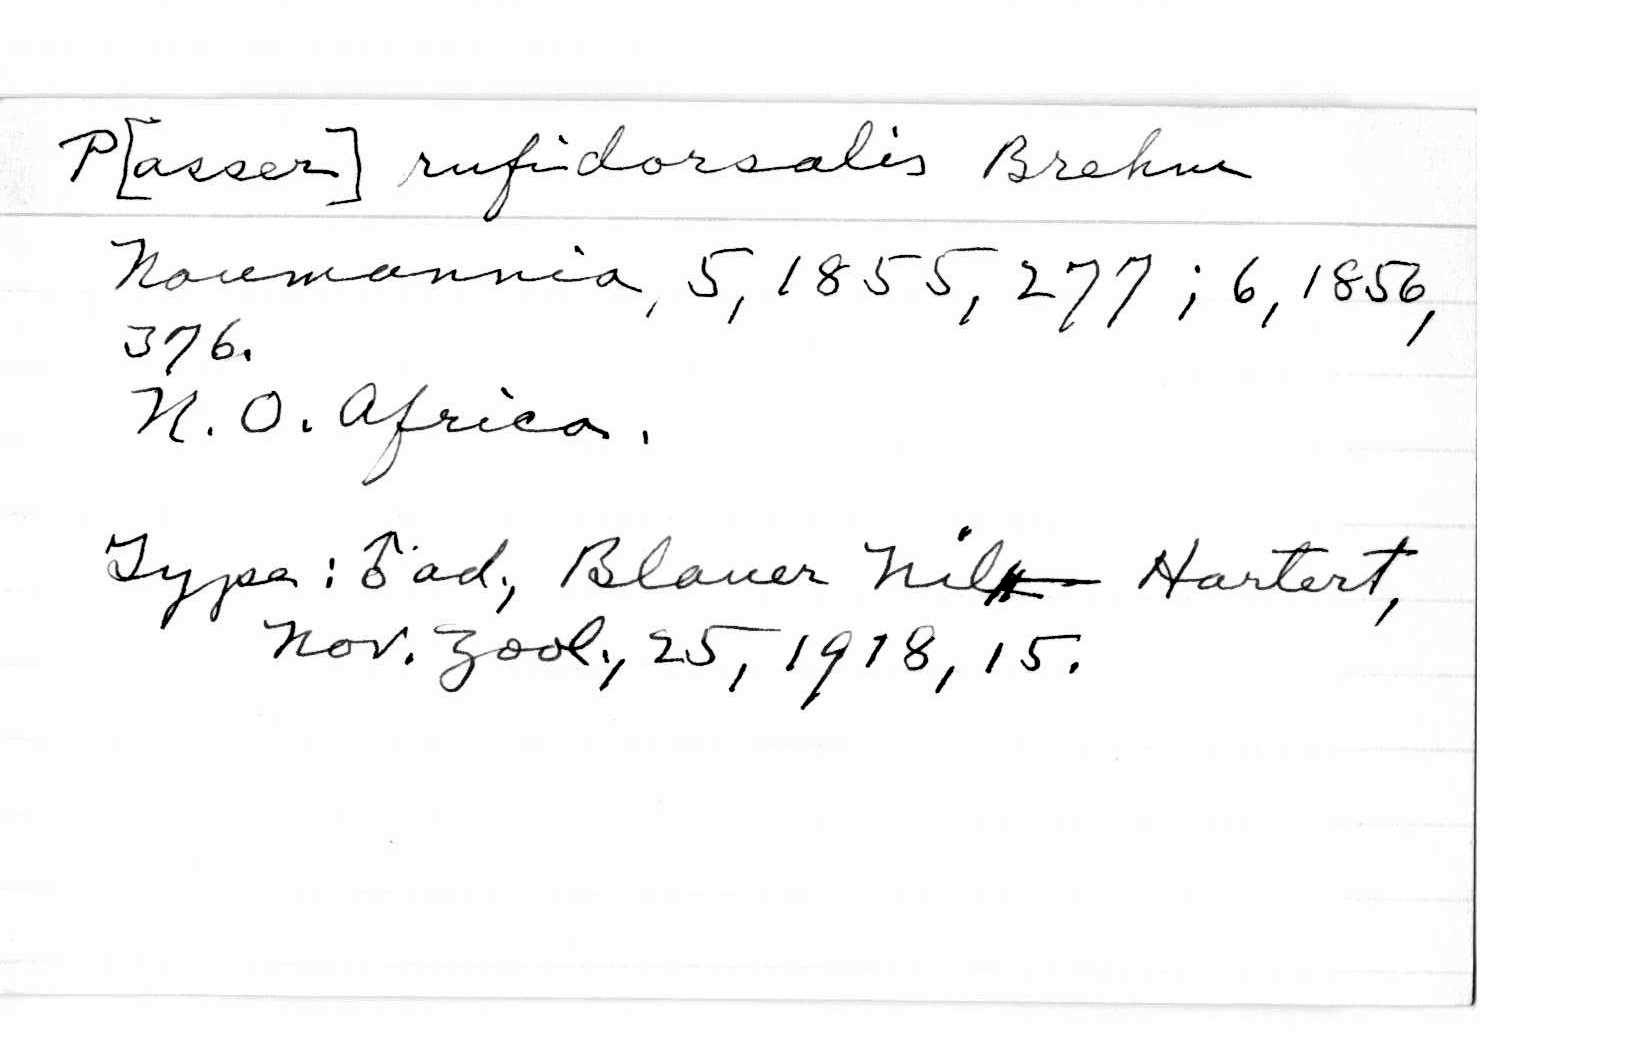 P[asser] rufidorsalis Brehm
Naumannia, 5, 1855, 277; 6, 1856,
376.
N. O. Africa.
Type: ♂ ad., Blauer Nil — Hartert,
Nov. Zool., 25, 1918, 15.